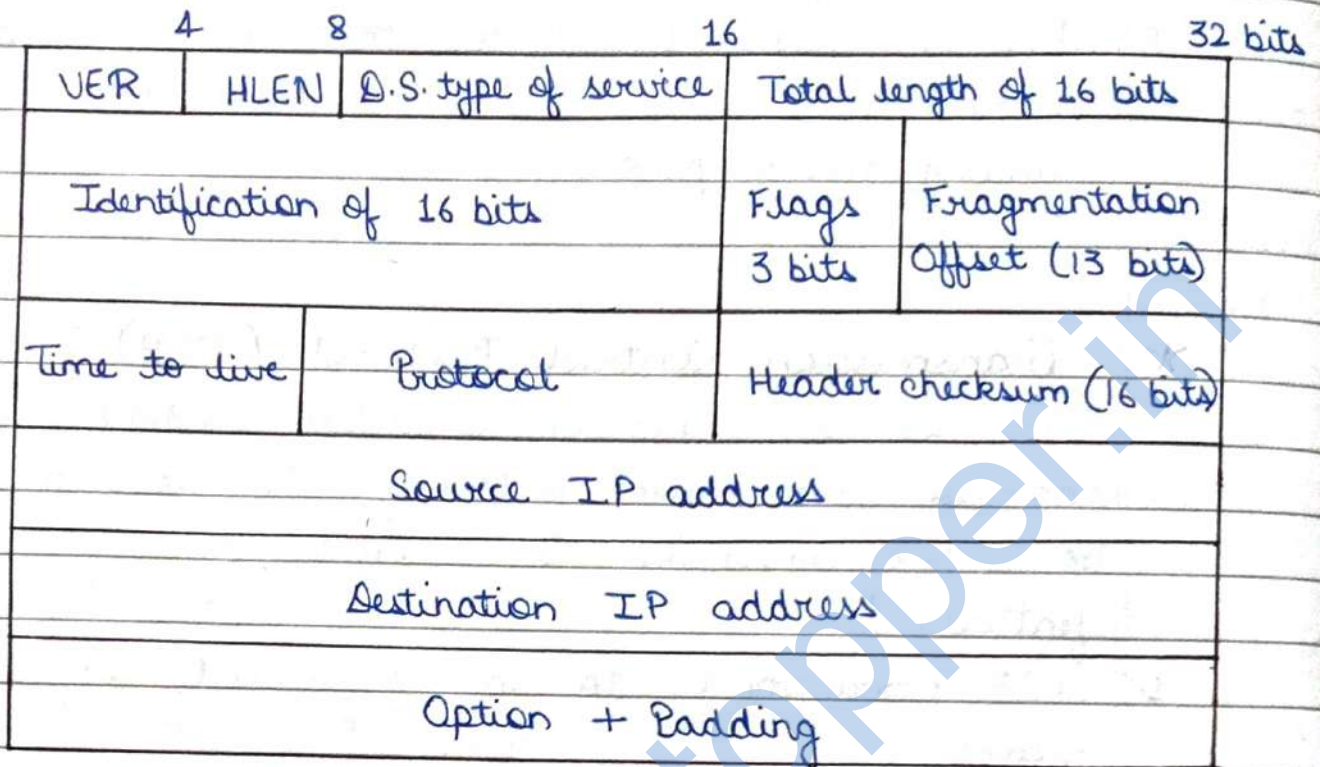 4 8 16 32 bits
VER HLEN D.S. type of service Total length of 16 bits
Identification of 16 bits Flags Fragmentation
3 bits Offset (13 bits)
Time to live Protocol Header checksum (16 bits)
Source IP address
Destination IP address
Option + Padding
topper.in